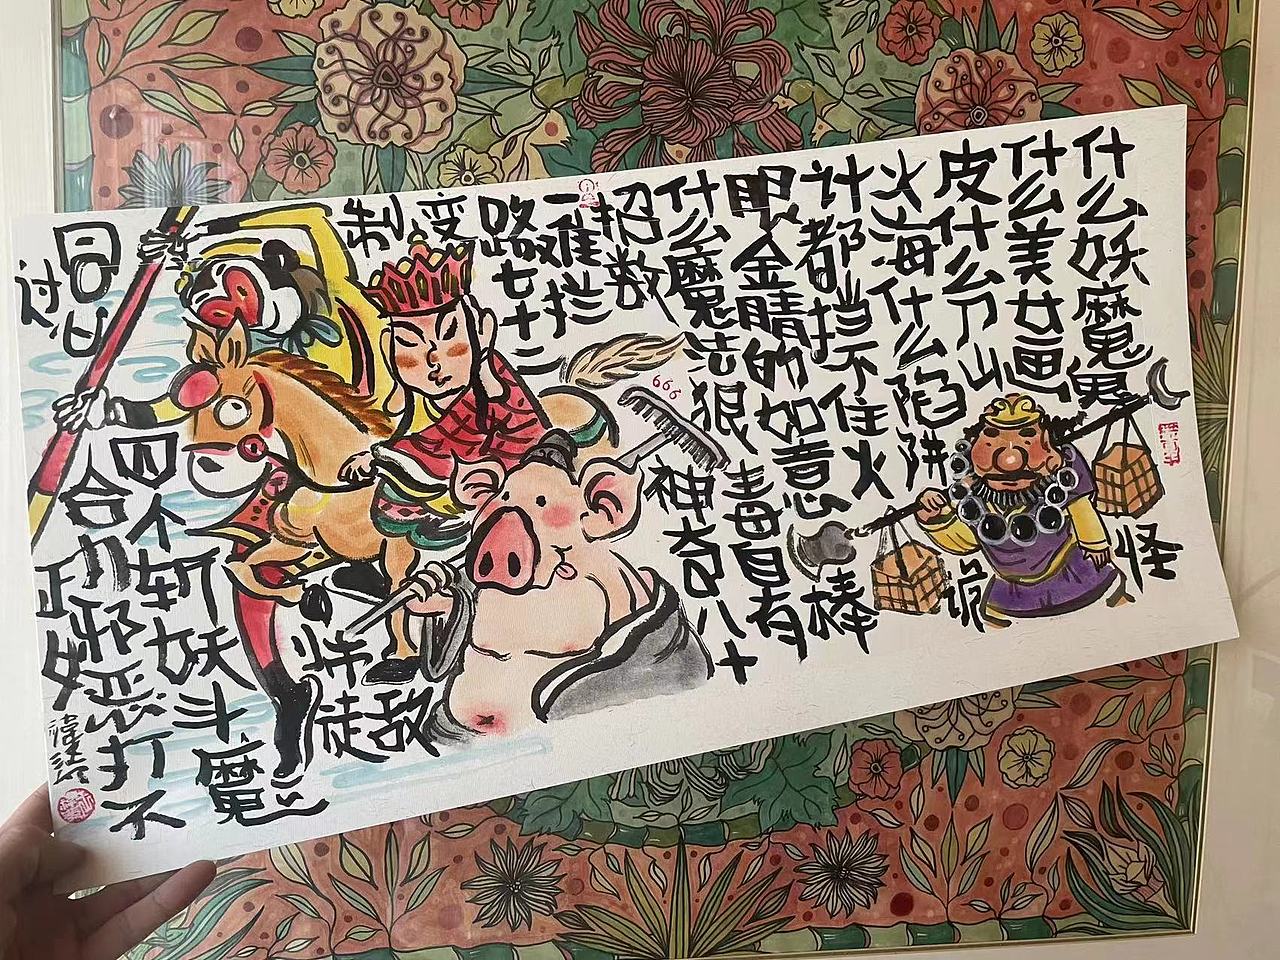 什么妖魔鬼怪
什么美女画
皮什么刀山
火海什么陷阱诡
计都挡不住火
眼金睛的如意棒
什么魔法狠毒自有
招数神奇八十
一难拦
路七十二
变
制敌
师徒
四个斩妖斗魔
同心合力邪恶打不
过正好
666